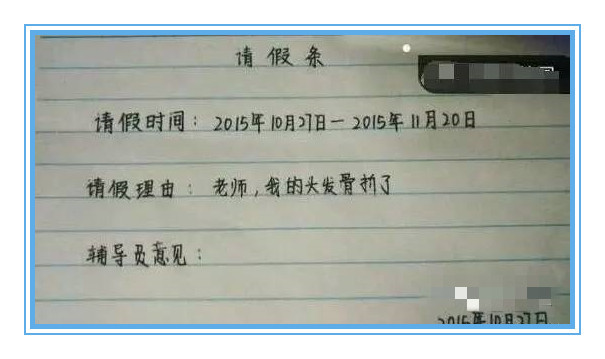 请假条
请假时间：2015年10月27日—2015年11月20日
请假理由：老师，我的头发骨折了
辅导员意见：
2015年10月27日